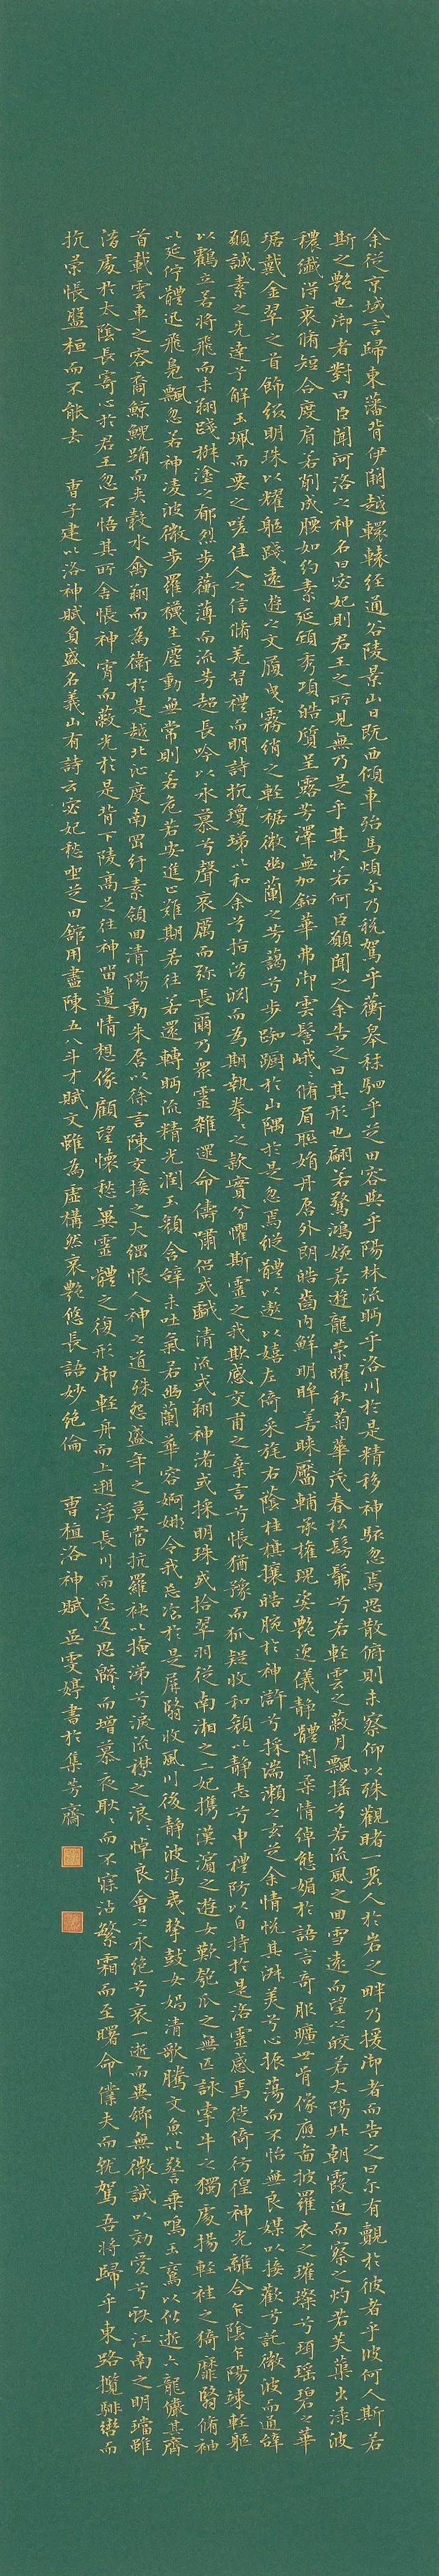 余從京域言歸東藩背伊闕越轘轅經通谷陵景山日既西傾車殆馬煩尔乃稅駕乎蘅皋秣駟乎芝田容與乎陽林流眄乎洛川於是精移神駭忽焉思散俯則未察仰以殊觀睹一麗人於岩之畔乃援御者而告之曰尔有覿於彼者乎彼何人斯若
斯之艷也御者對曰臣聞河洛之神名曰宓妃則君王之所見無乃是乎其狀若何臣願聞之余告之曰其形也翩若驚鴻婉若遊龍榮曜秋菊華茂春松髣髴兮若輕雲之蔽月飄搖兮若流風之回雪遠而望之皎若太陽升朝霞迫而察之灼若芙蕖出淥波
穠纖得衷脩短合度肩若削成腰如約素延頸秀項皓質呈露芳澤無加鉛華弗御雲髻峨峨脩眉聯娟丹唇外朗皓齒內鮮明眸善睞靨輔承權瑰姿艷逸儀靜體閑柔情綽態媚於語言奇服曠世骨像應圖披羅衣之璀璨兮珥瑤碧之華
琚戴金翠之首飾綴明珠以耀軀踐遠遊之文履曳霧綃之輕裾微幽蘭之芳藹兮步踟躕於山隅於是忽焉縱體以遨以嬉左倚采旄右蔭桂旗攘皓腕於神滸兮採湍瀨之玄芝余情悅其淑美兮心振蕩而不怡無良媒以接歡兮託微波而通辭
願誠素之先達兮解玉珮而要之嗟佳人之信脩羌習禮而明詩抗瓊珶以和余兮指潛淵而為期執拳拳之款實兮懼斯靈之我欺感交甫之棄言兮悵猶豫而狐疑收和顏以靜志兮申禮防以自持於是洛靈感焉徙倚彷徨神光離合乍陰乍陽竦輕軀
以鶴立若將飛而未翔踐椒塗之郁烈步蘅薄而流芳超長吟以永慕兮聲哀厲而弥長爾乃眾靈雜遝命儔嘯侶或戲清流或翔神渚或採明珠或拾翠羽從南湘之二妃攜漢濱之遊女歎匏瓜之無匹詠牽牛之獨處揚輕袿之猗靡翳脩袖
以延佇體迅飛鳧飄忽若神凌波微步羅襪生塵動無常則若危若安進止難期若往若還轉眄流精光潤玉顏含辭未吐氣若幽蘭華容婀娜令我忘飡於是屏翳收風川後靜波馮夷擊鼓女媧清歌騰文魚以警乘鳴玉鸞以偕逝六龍儼其齊
首載雲車之容裔鯨鯢踴而夾轂水禽翔而為衛於是越北沚度南岡紆素領回清陽動朱唇以徐言陳交接之大綱恨人神之道殊怨盛年之莫當抗羅袂以掩涕兮淚流襟之浪浪悼良會之永絕兮哀一逝而異鄉無微誠以効愛兮獻江南之明璫雖
潛處於太陰長寄心於君王忽不悟其所舍悵神宵而蔽光於是背下陵高足往神留遺情想像顧望懷愁冀靈體之復形御輕舟而上遡浮長川而忘返思綿綿而增慕夜耿耿而不寐沾繁霜而至曙命僕夫而就駕吾將歸乎東路攬騑轡而
抗策悵盤桓而不能去 曹子建以洛神賦負盛名義山有詩云宓妃愁坐芝田館用盡陳王八斗才賦文雖為虛構然哀艷悠長語妙絕倫 曹植洛神賦 吳雯婷書於集芳齋